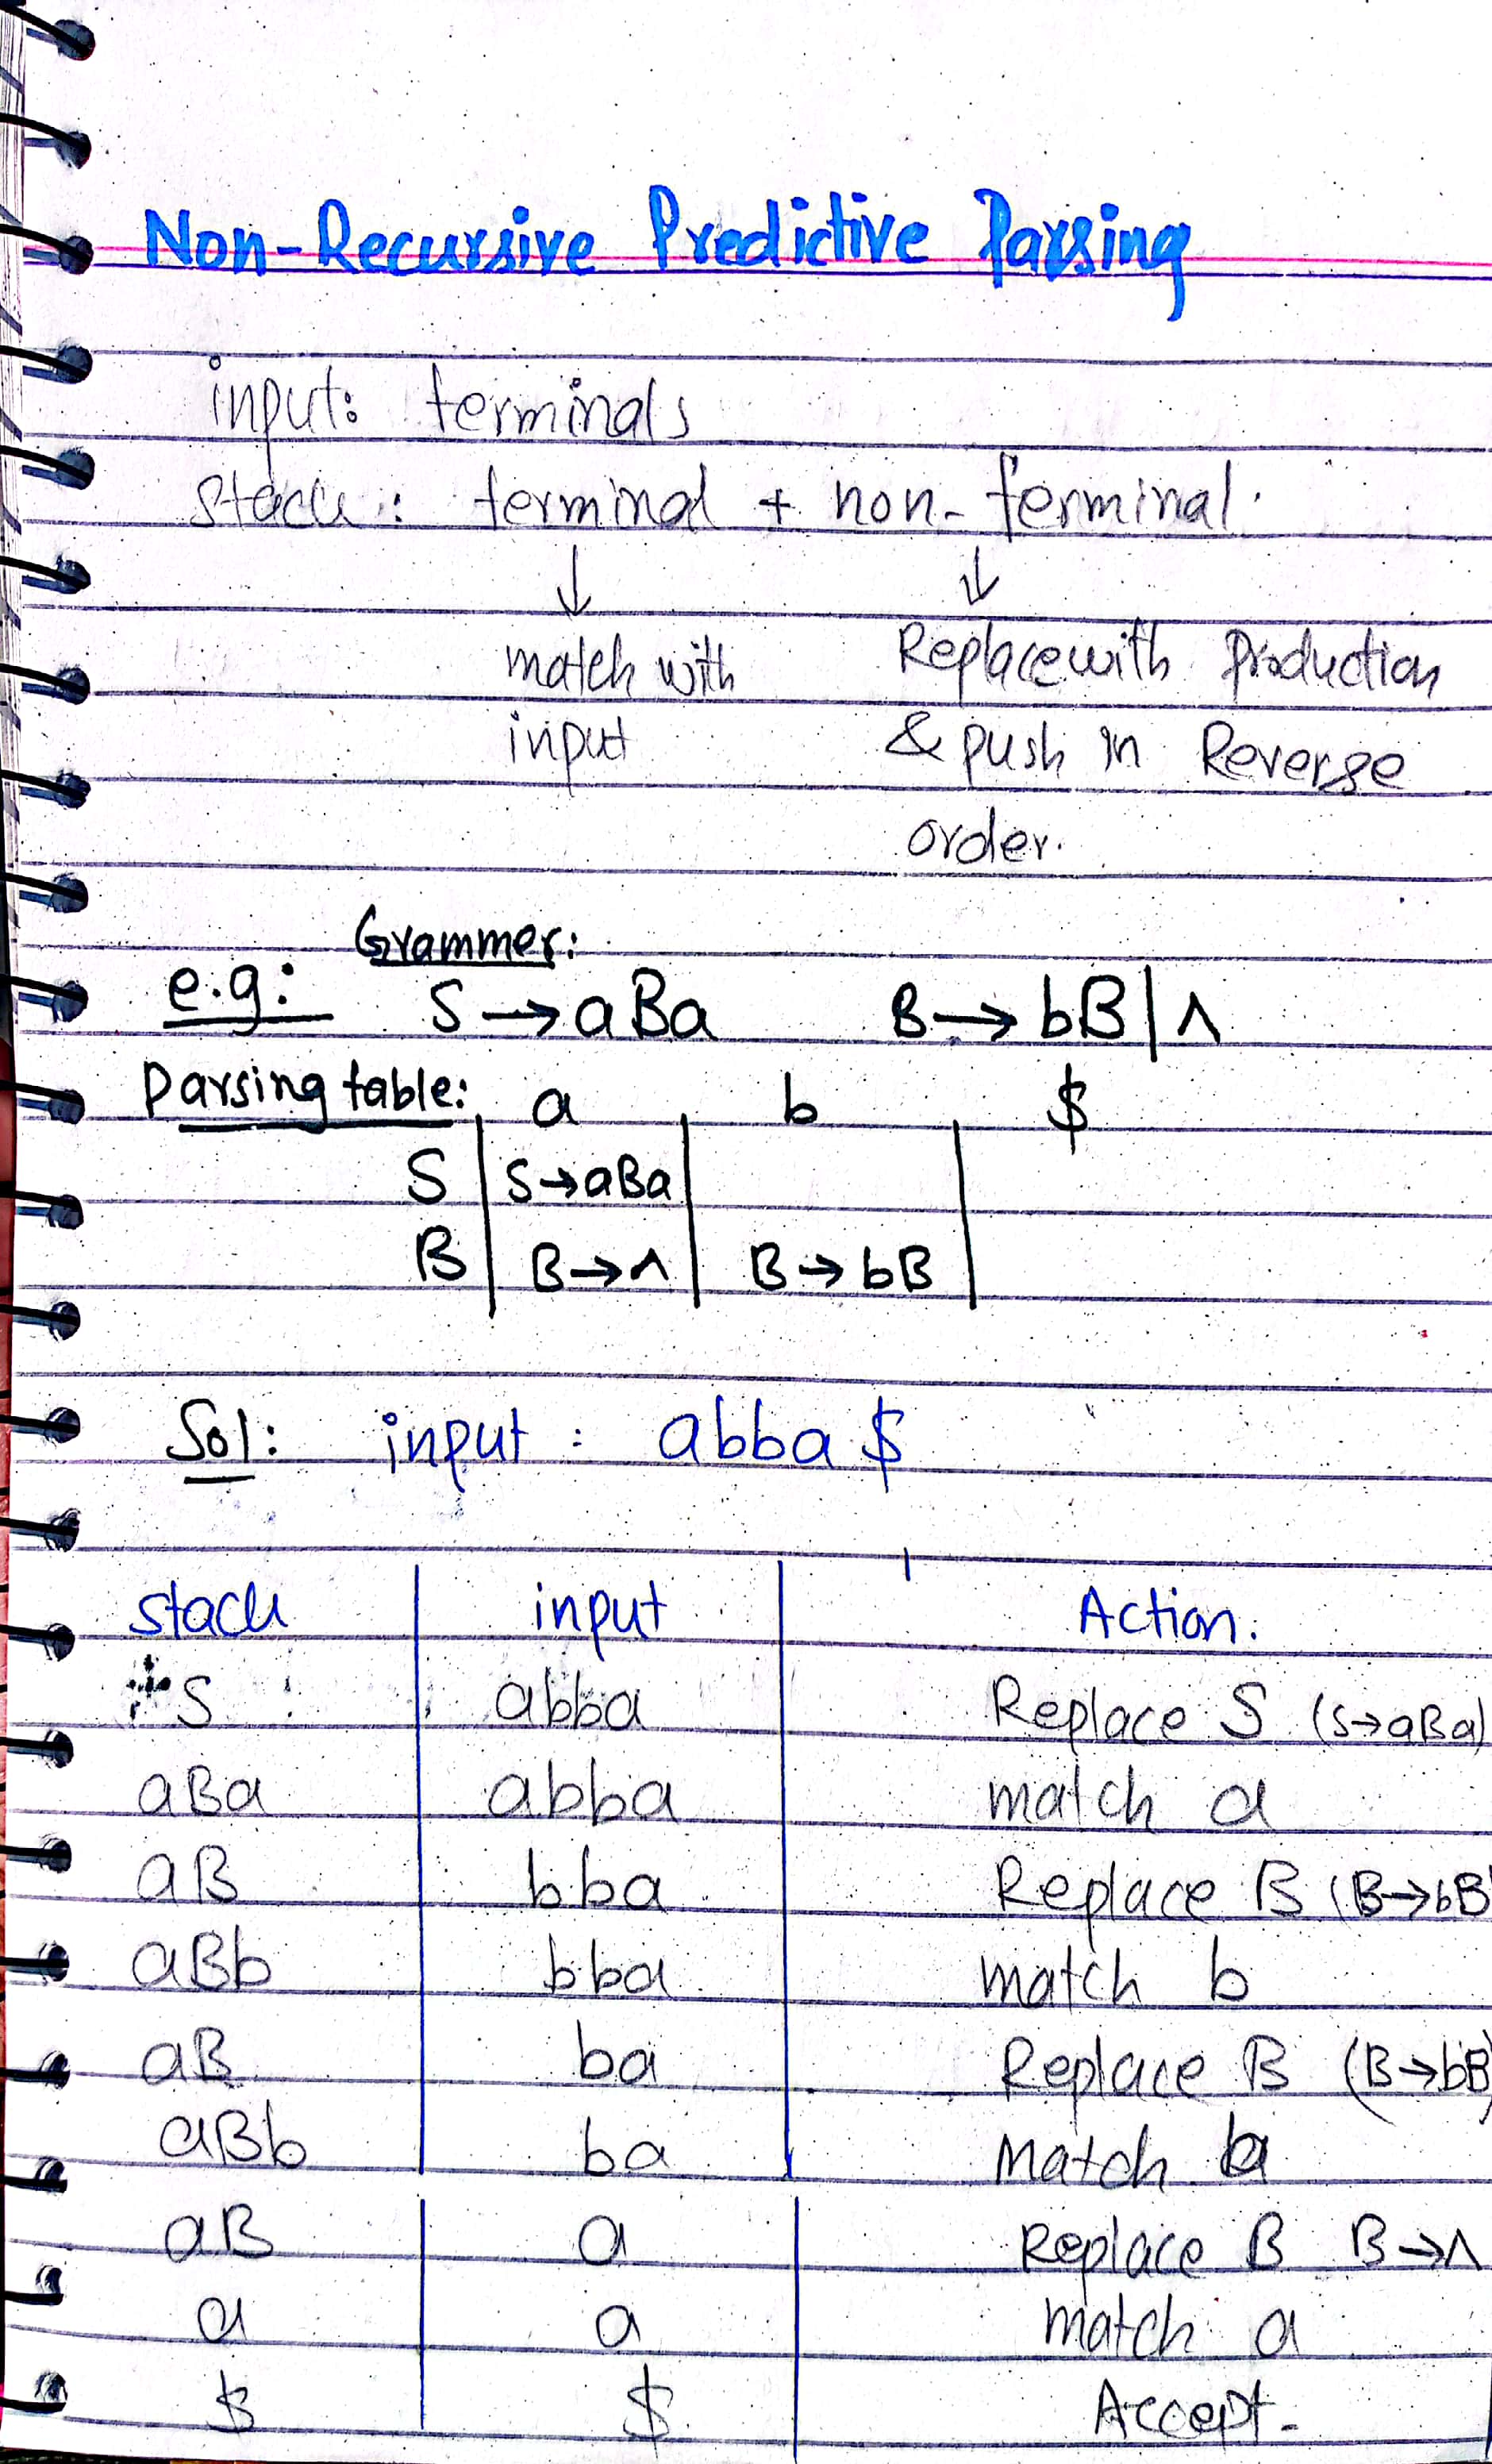 Non-Recursive Predictive Parsing
input: terminals
stack: terminal + non-terminal.
↓ ↓
match with Replace with production
input & push in Reverse
order.
Grammer:
e.g: S → aBa B → bB | ʌ
Parsing table: a b $
S | S→aBa | |
B | B→ʌ | B→bB |
Sol: input : abba $
stack | input | Action.
S | abba | Replace S (S→aBa)
aBa | abba | match a
aB | bba | Replace B (B→bB)
aBb | bba | match b
aB | ba | Replace B (B→bB)
aBb | ba | Match b
aB | a | Replace B B→ʌ
a | a | match a
$ | $ | Accept.